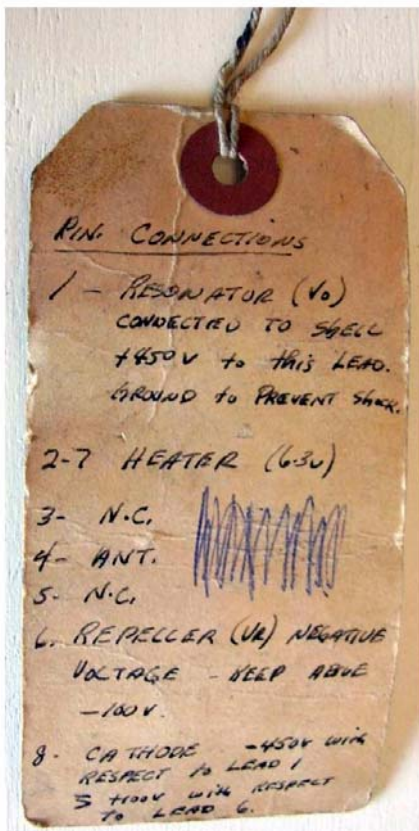 PIN. CONNECTIONS
1 - RESONATOR (Vo)
CONNECTED TO SHELL
+450V to this LEAD.
GROUND to PREVENT SHOCK.
2-7 HEATER (6.3V)
3- N.C.
4- ANT.
5- N.C.
6. REPELLER (VR) NEGATIVE
VOLTAGE - KEEP ABOVE
-100V.
8. CATHODE -450V with
RESPECT to LEAD 1
+100V with RESPECT
to LEAD 6.